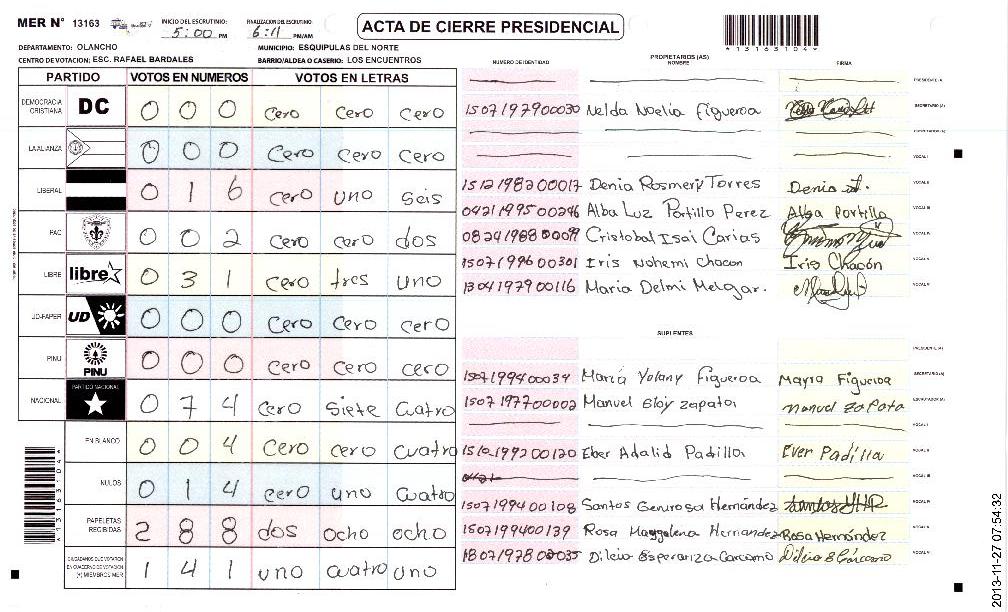 MER N° 13163 INICIO DEL ESCRUTINIO: 5:00 PM FINALIZACION DEL ESCRUTINIO: 6:11 PM/AM ACTA DE CIERRE PRESIDENCIAL *13163104*
DEPARTAMENTO: OLANCHO MUNICIPIO: ESQUIPULAS DEL NORTE
CENTRO DE VOTACION: ESC. RAFAEL BARDALES BARRIO/ALDEA O CASERIO: LOS ENCUENTROS
PARTIDO VOTOS EN NUMEROS VOTOS EN LETRAS
DEMOCRACIA CRISTIANA DC 0 0 0 cero cero cero
LA ALIANZA 0 0 0 cero cero cero
LIBERAL 0 1 6 cero uno seis
PAC 0 0 2 cero cero dos
LIBRE libre 0 3 1 cero tres uno
UD-FAPER UD 0 0 0 cero cero cero
PINU PINU 0 0 0 cero cero cero
NACIONAL PARTIDO NACIONAL 0 7 4 cero siete cuatro
EN BLANCO 0 0 4 cero cero cuatro
NULOS 0 1 4 cero uno cuatro
PAPELETAS RECIBIDAS 2 8 8 dos ocho ocho
CIUDADANOS QUE VOTARON EN CUADERNO DE VOTACION (+) MIEMBROS MER 1 4 1 uno cuatro uno
*13163104*
PROPIETARIOS (AS)
NUMERO DE IDENTIDAD NOMBRE FIRMA
PRESIDENTE (A)
1507197900030 Nelda Noelia Figueroa SECRETARIO (A)
ESCRUTADOR (A)
VOCAL I
1512198200017 Denia Rosmery Torres Denia VOCAL II
0421199500246 Alba Luz Portillo Perez Alba Portillo VOCAL III
Cristobal Isai Carias VOCAL IV
1507199600301 Iris Nohemi Chacon Iris Chacón VOCAL V
1304197900116 Maria Delmi Melgar. VOCAL VI
SUPLENTES
PRESIDENTE (A)
1507199400034 Maria Yolany Figueroa Mayra Figueroa SECRETARIO (A)
1507197700002 Manuel Eloy Zapata Manuel Zapata ESCRUTADOR (A)
VOCAL I
1510199200120 Eber Adalid Padilla Ever Padilla VOCAL II
VOCAL III
1507199400108 Santos Generosa Hernández VOCAL IV
1507199400139 Rosa Maggalena Hernandez Rosa Hernández VOCAL V
Dilcia Esperanza Carcamo Dilcia E Cárcamo VOCAL VI
2013-11-27 07:54:32